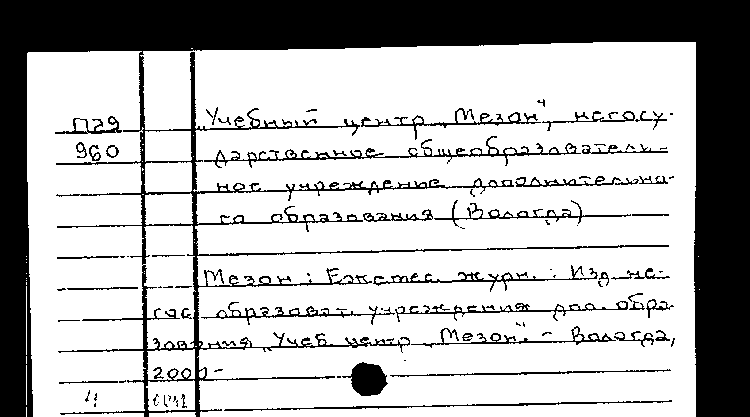 П29
960
„Учебный центр „Мезон“, негосу-
дарственное общеобразователь-
ное учреждение дополнительно-
го образования (Вологда)
Мезон : Ежемес. журн. : Изд. не-
гос образоват. учреждения доп. обра-
зования „Учеб. центр „Мезон“. – Вологда,
2000-
4